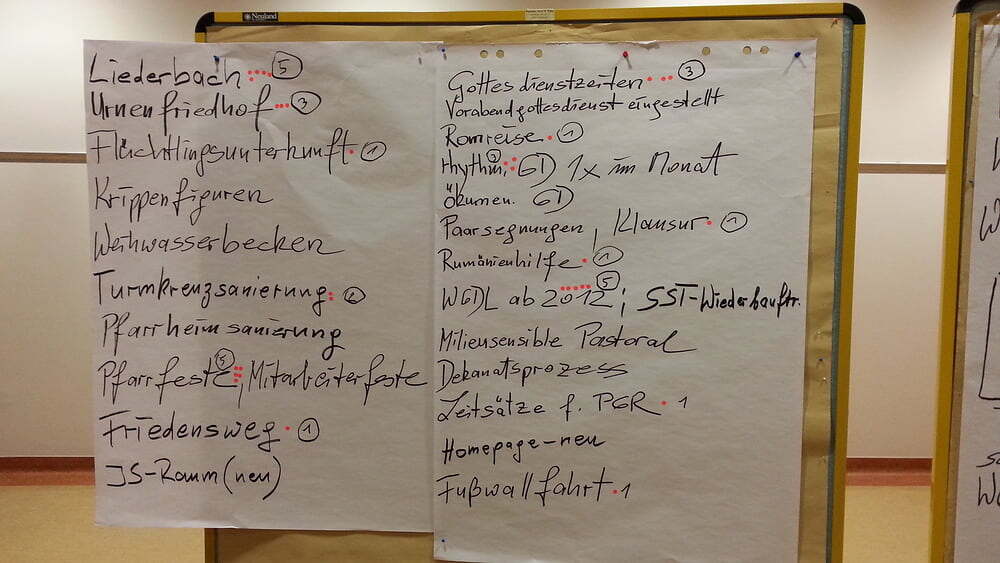 Neuland
Liederbach 5
Urnenfriedhof 3
Flüchtlingsunterkunft 1
Krippenfiguren
Weihwasserbecken
Turmkreuzsanierung 2
Pfarrheimsanierung
Pfarrfeste 5, Mitarbeiterfeste
Friedensweg 1
JS-Raum (neu)
Gottesdienstzeiten 3
Vorabendgottesdienst eingestellt
Romreise 1
rhythm. 3 GD 1x im Monat
Ökumen. GD
Paarsegnungen, Klausur 1
Rumänienhilfe 1
WGDL ab 2012 5; SST-Wiederbauftr.
Milieusensible Pastoral
Dekanatsprozess
Leitsätze f. PGR 1
Homepage-neu
Fußwallfahrt 1